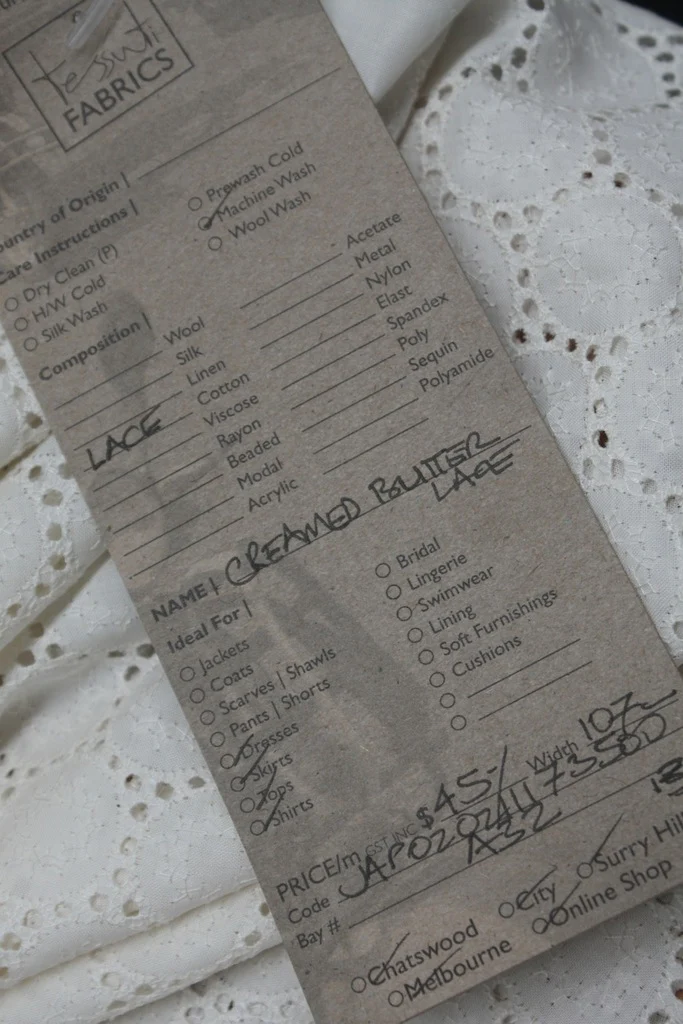 tessuti
FABRICS
ountry of Origin |
Care Instructions |
Dry Clean (P)
H/W Cold
Silk Wash
Prewash Cold
Machine Wash
Wool Wash
Composition |
Wool
Silk
Linen
LACE Cotton
Viscose
Rayon
Beaded
Modal
Acrylic
Acetate
Metal
Nylon
Elast
Spandex
Poly
Sequin
Polyamide
NAME | CREAMED BUTTER
LACE
Ideal For |
Jackets
Coats
Scarves | Shawls
Pants | Shorts
Dresses
Skirts
Tops
Shirts
Bridal
Lingerie
Swimwear
Lining
Soft Furnishings
Cushions
PRICE/m GST INC $45-/ Width 107
Code
Bay # A32
Chatswood
Melbourne
City
Online Shop
Surry Hil